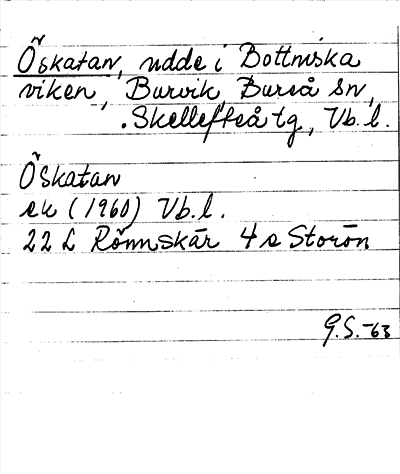 Öskatan, udde i Bottniska
viken, Burvik, Bureå sn,
Skellefteå tg., Vb. l.
Öskatan
ek (1960) Vb. l.
22 L Rönnskär 4 a Storön
G.S.-63